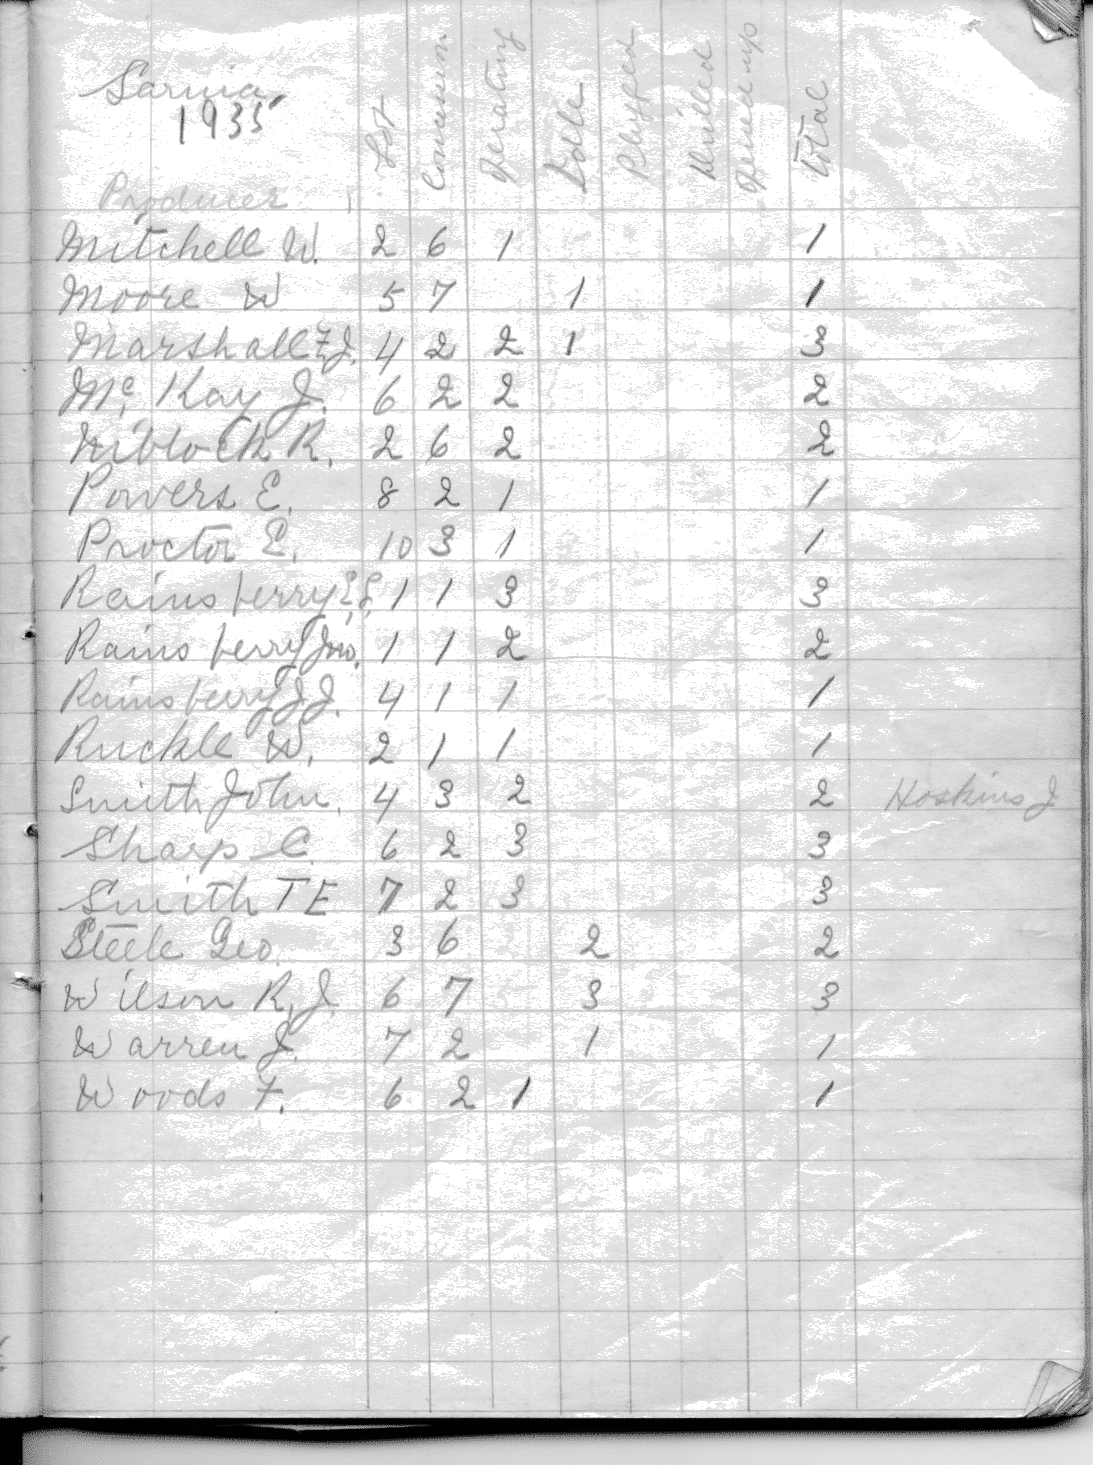 Sarnia
1935
Producer Lot Concession Operating Idle Plugged Drilled Total
Mitchell W. 2 6 1 1
Moore W 5 7 1 1
Marshall F.J. 4 2 2 1 3
Mc Kay J. 6 2 2 2
Niblock R. 2 6 2 2
Powers E. 8 2 1 1
Proctor E. 10 3 1 1
Rainsberry 1 1 3 3
Rainsberry Jno. 1 1 2 2
Rainsberry J.J. 4 1 1 1
Ruckle W. 2 1 1 1
Smith John. 4 3 2 2 Hoskins J
Sharp C. 6 2 3 3
Smith T E 7 2 3 3
Steele Geo. 3 6 2 2
Wilson R.J. 6 7 3 3
Warren J. 7 2 1 1
Woods F. 6 2 1 1